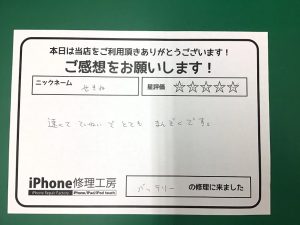 本日は当店をご利用頂きありがとうございます!
ご感想をお願いします!
ニックネーム
せすね
星評価 ☆☆☆☆☆
速くて ていねいで とても まんぞくです。
iPhone修理工房
iPhone Repair Factory iPhone/iPad/iPod touch
バッテリー の修理に来ました